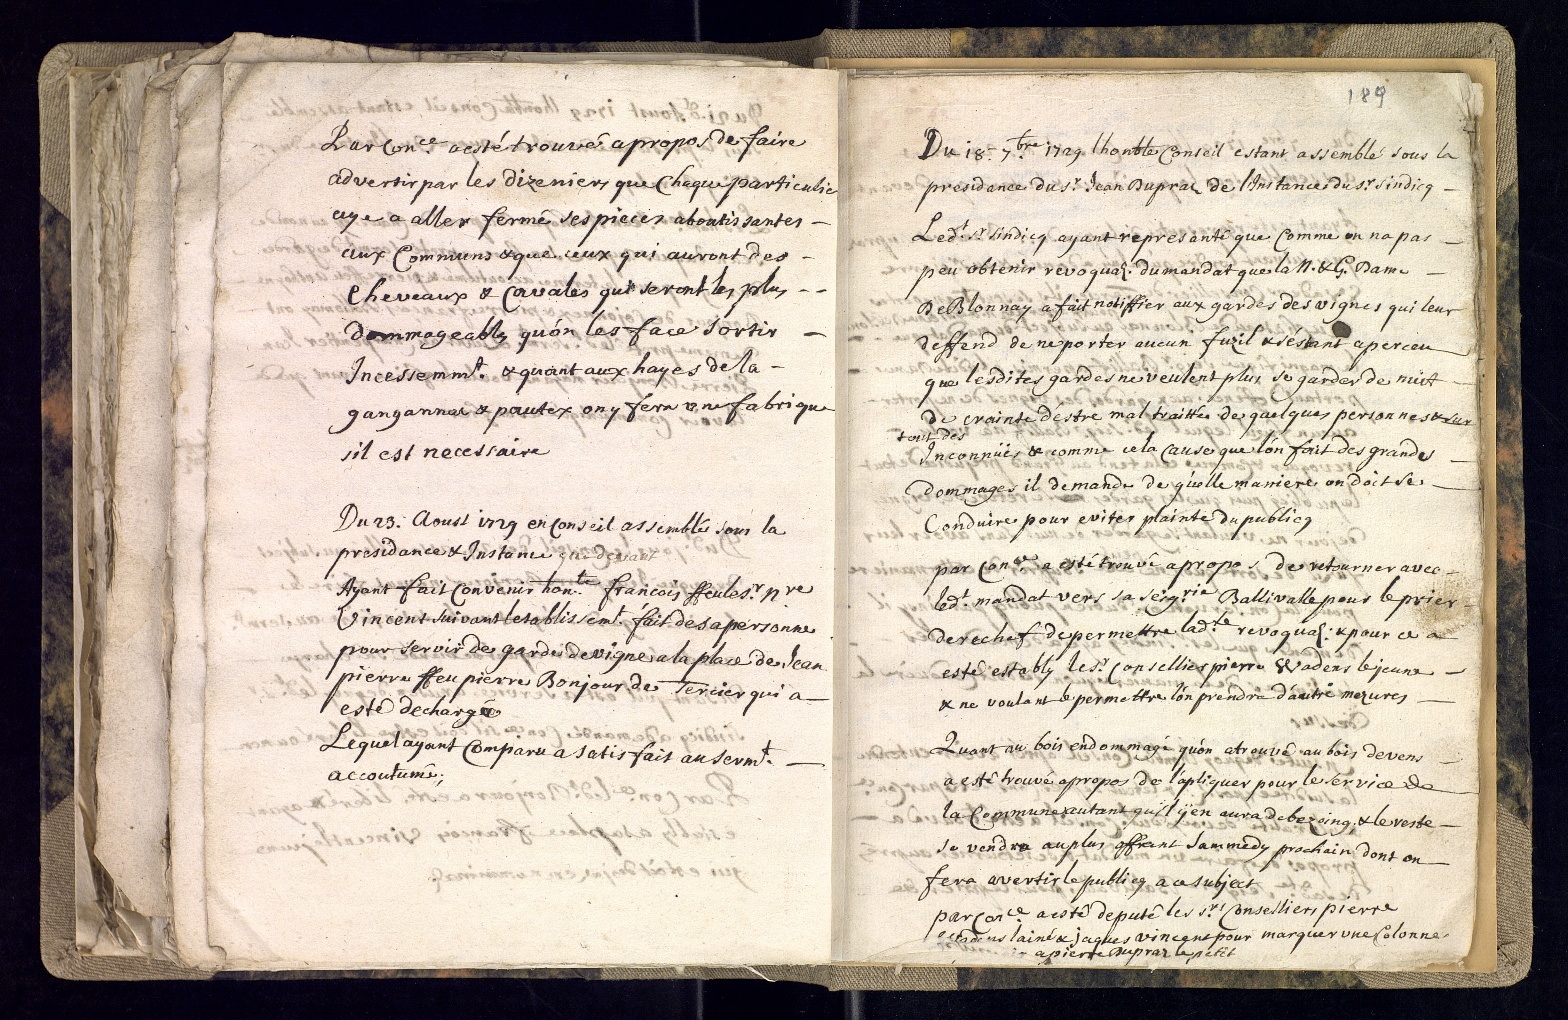 Par Con.ce a esté trouvé apropos de faire
advertir par les dizeniers que Cheque particulie
aye a aller fermé ses pieces aboutissantes –
aux Communs & que ceux qui auront des –
Cheveaux & Cavales qui seront les plus – –
Dommageably qu'on les face Sortir –
Incessemm.t & quant aux hayes de la –
gangannaz & pautex on y fera vne fabrique
sil est necessaire
Du 23. Aoust 1729 en Conseil assemblé sous la
presidance & Instance que devant
Ayant fait Convenir hon.te françois ffeu le s.r p.re
Vincent suivant letablissem.t fait de sa personne
pour servir de garde de vigne a la place de Jean
pierre ffeu pierre Bonjour de Tercier qui a –
esté dechargé
Lequel ayant Comparu a satisfait au serm.t –
accoutumé;
189
Du 18.e 7.bre 1729 lhonble Conseil estant assemblé sous la
presidance du s.r Jean Dupraz de l'Instance du s.r sindicq –
Led.t s.r sindicq ayant representé que Comme on na pas –
peu obtenir revoquaō. du mandat que la N. & G. Dame –
De Blonnay a fait notiffier aux gardes des vignes qui leur
deffend de ne porter aucun fuzil & s'éstant aperceu
que lesdites gardes ne veulent plus se garder de nuit –
de crainte destre mal traittée de quelques personnes & sur
tout des
Inconnüës & comme cela cause que lon fait des grands –
dommages il demande de quelle maniere on doit se –
Conduire pour eviter plainte du publicq
par Con.ce a esté trouvé apropos de retourner avec –
led.t mandat vers sa seig.rie Ballivalle pour le prier –
derechef de permettre lad.te revoquaō. & pour ce a –
esté estably le s.r Consellier pierre Wadens le jeune –
& ne voulant le permettre l'on prendre d'autre mezures –
Quant au bois endommagé qu'on a trouvé au bois devens –
a esté trouvé apropos de l'apliquer pour le service de
la Commune autant qu'il y en aura de bezoing, & le reste –
se vendra au plus offrant Sammedy prochain dont on –
fera avertir le publicq a ce subject
par Con.ce a esté deputé les s.rs Conselliers pierre
Wadens lainé & jaques vincent pour marquer vne Colonne
a pierre Dupraz le petit